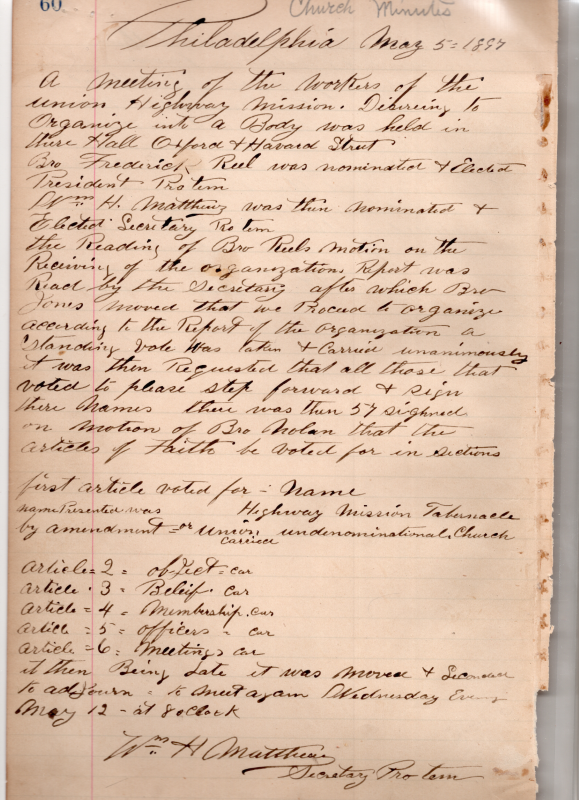 60
Church Minutes
Philadelphia May 5 = 1897
A meeting of the workers of the
union Highway Mission. Desireing to
Organize into a Body was held in
there Hall Oxford & Havard Street
Bro Frederick Reel was nominated & Elected
President Protem
Wm H. Matthews was then nominated &
Elected Secretary Pro tem
the Reading of Bro Reels motion on the
Receiving of the organizations Report was
Read by the Secretary after which Bro
Jones moved that we Proceed to organize
according to the Report of the organization a
Standing vote was taken & Carried unanimously
it was then Requested that all those that
voted to please step forward & sign
there Names there was then 57 sighned
on motion of Bro Nolan that the
articles of Faith be voted for in Sections
first article voted for = Name
name Presented was Highway Mission Tabernacle
by amendment = or union undenominational Church
Carried
article = 2 = obJect = car
article . 3 = Beleif . car
article = 4 = Membership . car
article = 5 = officers = car
article = 6 = Meetings car
it then Being Late it was Moved & Seconded
to adJourn = to meet again Wednesday Evening
May 12 - at 8 oClock
Wm H Matthews
Secretary Pro tem